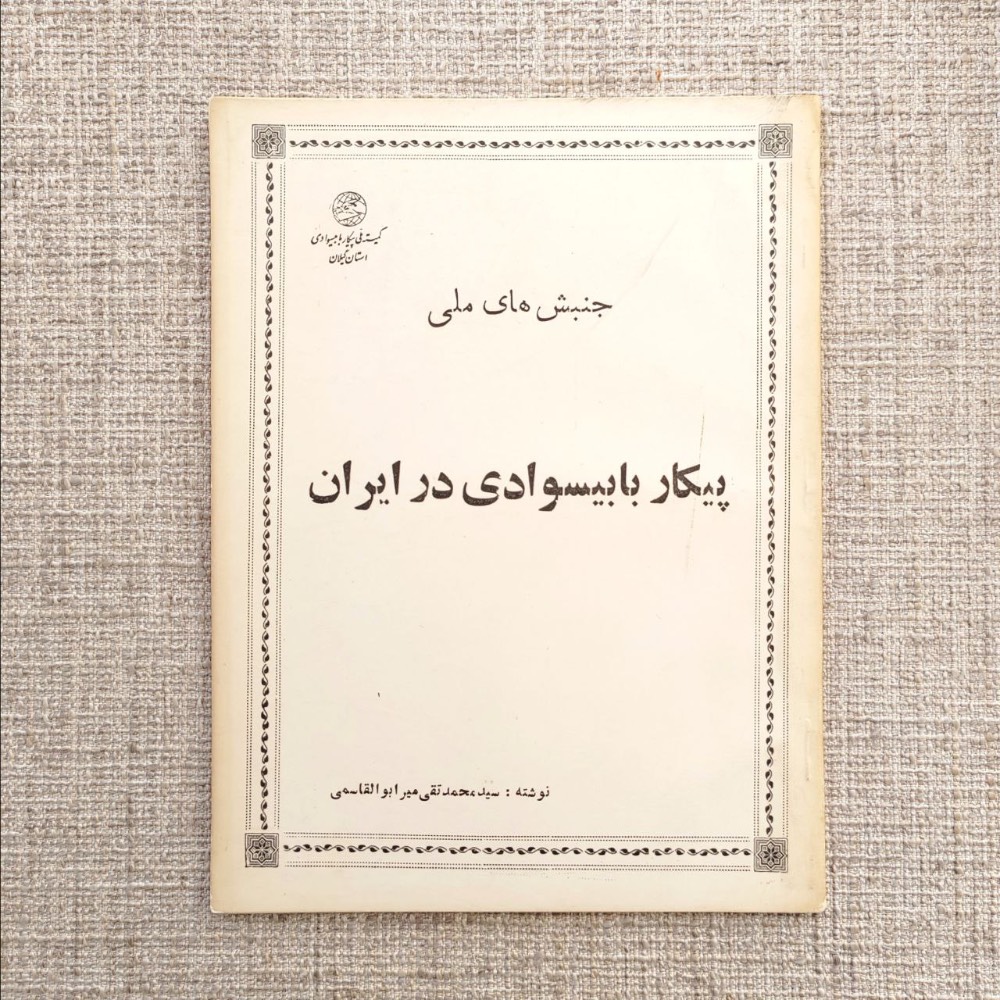 کمیته ملی پیکار با بیسوادی
استان گیلان
جنبش های ملی
پیکار با بیسوادی در ایران
نوشته : سید محمد تقی میر ابوالقاسمی